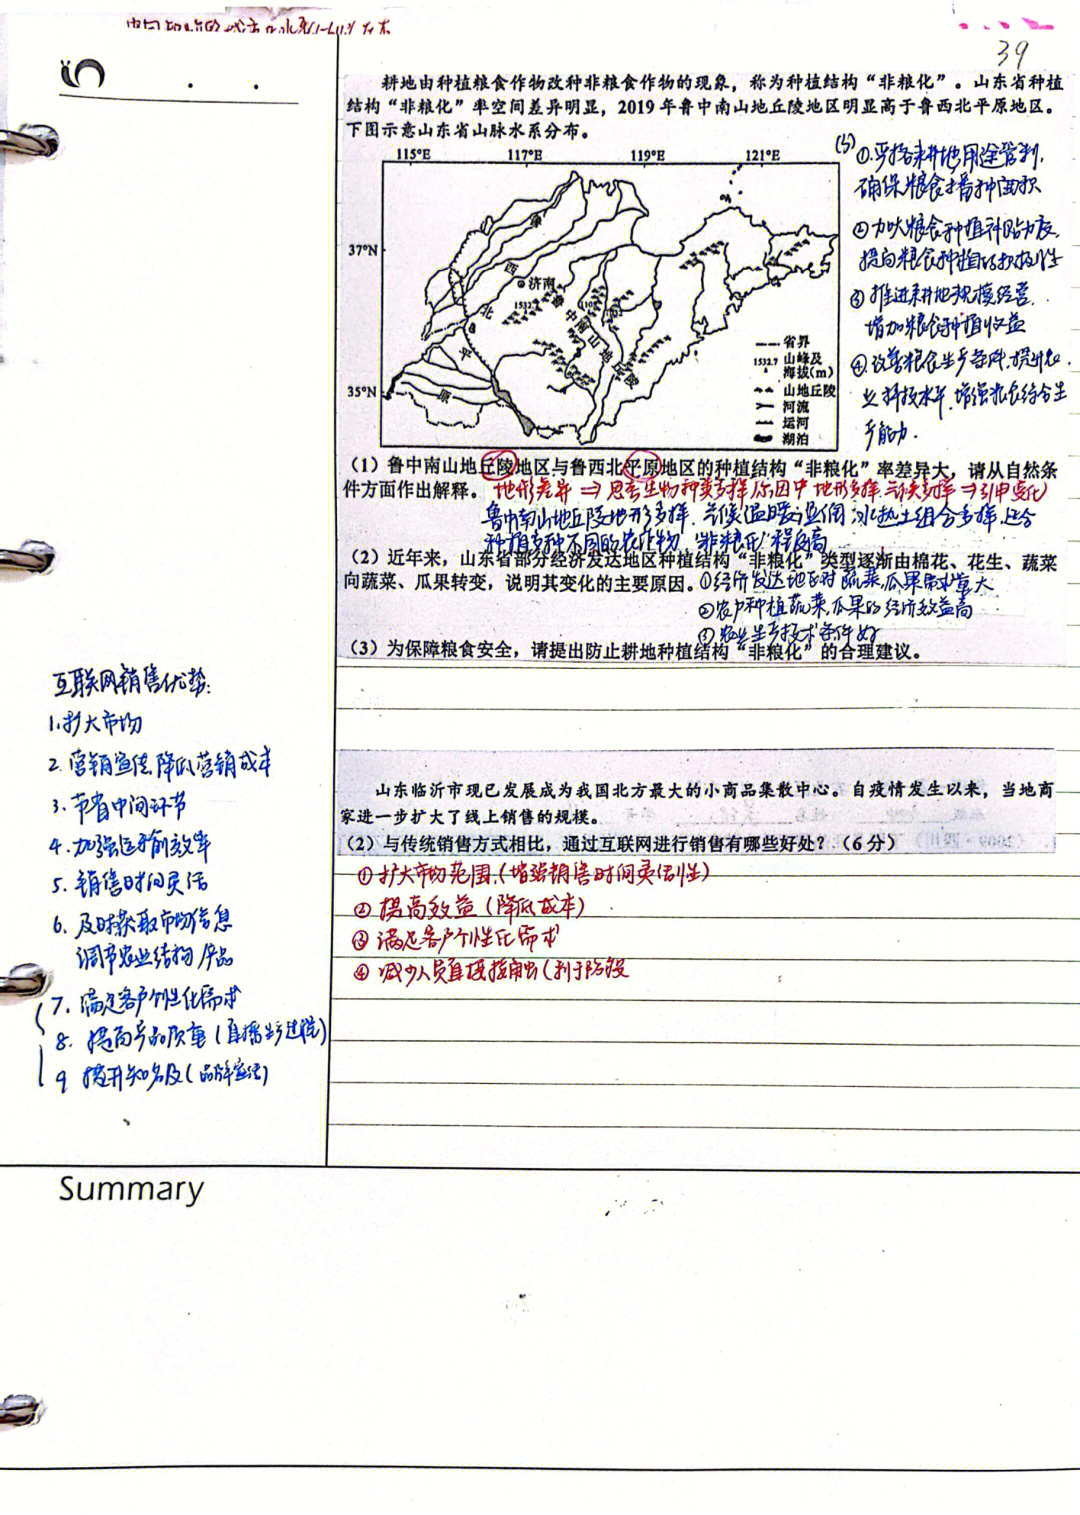 39
耕地由种植粮食作物改种非粮食作物的现象，称为种植结构“非粮化”。山东省种植
结构“非粮化”率空间差异明显，2019年鲁中南山地丘陵地区明显高于鲁西北平原地区。
下图示意山东省山脉水系分布。
115°E 117°E 119°E 121°E
37°N
35°N
济南
鲁西北平原
鲁中南山地丘陵
1532.7
省界
1532.7 山峰及
海拔(m)
山地丘陵
河流
运河
湖泊
(3) ①严格耕地用途管制,
确保粮食播种面积
②加大粮食种植补贴力度,
提高粮食种植的积极性
③推进耕地规模经营,
增加粮食种植收益
④改善粮食生产条件,提升农
业科技水平,增强粮食综合生
产能力.
（1）鲁中南山地丘陵地区与鲁西北平原地区的种植结构“非粮化”率差异大，请从自然条
件方面作出解释。
地形差异 ⇒ 思考生物种类多样原因中 地形多样,气候多样 ⇒
鲁中南山地丘陵地形多样，气候温暖湿润,水热土组合多样,适合
种植多种不同的农作物,“非粮化”程度高
（2）近年来，山东省部分经济发达地区种植结构“非粮化”类型逐渐由棉花、花生、蔬菜
向蔬菜、瓜果转变，说明其变化的主要原因。
①经济发达地区对蔬菜,瓜果需求量大
②农户种植蔬菜,瓜果的经济效益高
③农业生产技术条件好
（3）为保障粮食安全，请提出防止耕地种植结构“非粮化”的合理建议。
互联网销售优势:
1.扩大市场
2.营销宣传,降低营销成本
3.节省中间环节
4.加强运输效率
5.销售时间灵活
6.及时获取市场信息
调节农业结构,产品
7.满足客户个性化需求
8.提高产品质量(直播生产过程)
9 提升知名度(品牌宣传)
山东临沂市现已发展成为我国北方最大的小商品集散中心。自疫情发生以来，当地商
家进一步扩大了线上销售的规模。
（2）与传统销售方式相比，通过互联网进行销售有哪些好处？（6分）
①扩大市场范围,(增强销售时间灵活性)
②提高效益(降低成本)
③满足客户个性化需求
④减少人员直接接触(利于防疫
Summary